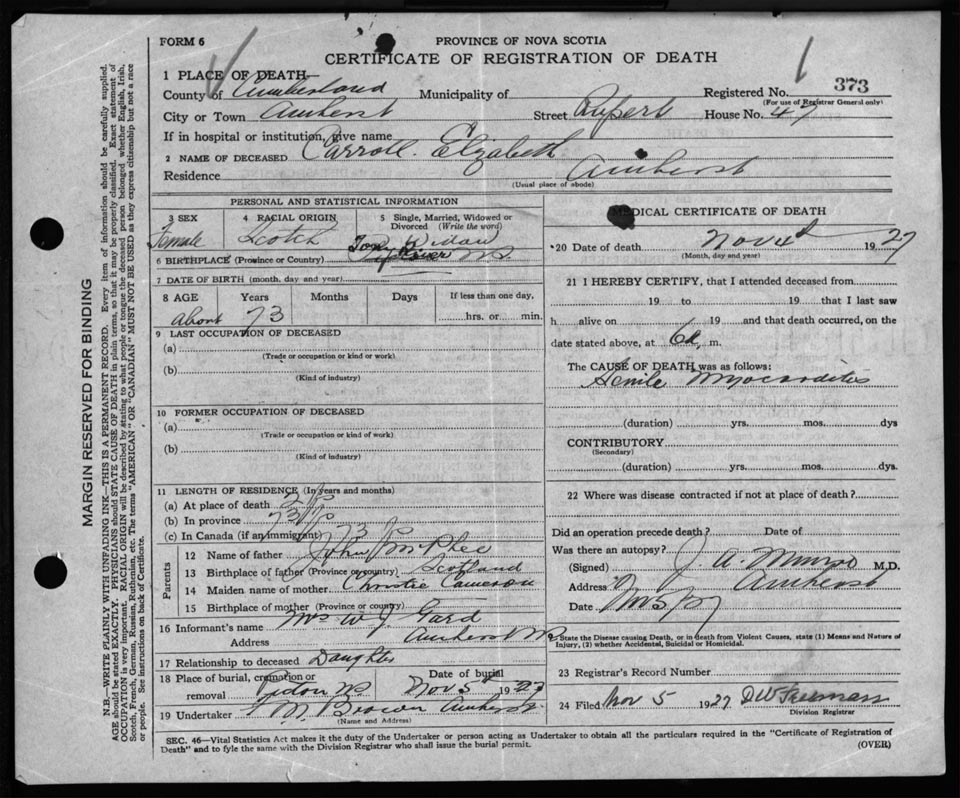 FORM 6
PROVINCE OF NOVA SCOTIA
CERTIFICATE OF REGISTRATION OF DEATH
1 PLACE OF DEATH—
County of Cumberland Municipality of Registered No. 373
(For use of Registrar General only)
City or Town Amherst Street Rupert House No. 47
If in hospital or institution, give name
2 NAME OF DECEASED Carroll. Elzabeth
Residence Amherst
(Usual place of abode)
PERSONAL AND STATISTICAL INFORMATION
3 SEX Female
4 RACIAL ORIGIN Scotch
5 Single, Married, Widowed or Divorced (Write the word)
6 BIRTHPLACE (Province or Country) River
7 DATE OF BIRTH (month, day and year)
8 AGE Years Months Days If less than one day,
about 73 hrs. or min.
9 LAST OCCUPATION OF DECEASED
(a)
(Trade or occupation or kind or work)
(b)
(Kind of industry)
10 FORMER OCCUPATION OF DECEASED
(a)
(Trade or occupation or kind of work)
(b)
(Kind of industry)
11 LENGTH OF RESIDENCE (In years and months)
(a) At place of death
(b) In province 73
(c) In Canada (if an immigrant) 73
Parents
12 Name of father John McPhee
13 Birthplace of father (Province or country) Scotland
14 Maiden name of mother Christie Cameron
15 Birthplace of mother (Province or country)
16 Informant's name Mrs W. J. Gard
Address Amherst
17 Relationship to deceased Daughter
18 Place of burial, cremation or removal Date of burial Nov 5 1927
19 Undertaker Brown Amherst
(Name and Address)
MEDICAL CERTIFICATE OF DEATH
20 Date of death Nov 4 1927
(Month, day and year)
21 I HEREBY CERTIFY, that I attended deceased from
19 to 19 that I last saw
h alive on 19 and that death occurred, on the
date stated above, at 6 a. m.
The CAUSE OF DEATH was as follows:
Senile Myocarditis
(duration) yrs. mos. dys
CONTRIBUTORY
(Secondary)
(duration) yrs. mos. dys.
22 Where was disease contracted if not at place of death?
Did an operation precede death? Date of
Was there an autopsy?
(Signed) J. A. Munro M.D.
Address Amherst
Date
State the Disease causing Death, or in death from Violent Causes, state (1) Means and Nature of
Injury, (2) whether Accidental, Suicidal or Homicidal.
23 Registrar's Record Number
24 Filed Nov 5 1927 D W Freeman
Division Registrar
SEC. 46—Vital Statistics Act makes it the duty of the Undertaker or person acting as Undertaker to obtain all the particulars required in the "Certificate of Registration of
Death" and to fyle the same with the Division Registrar who shall issue the burial permit. (OVER)
MARGIN RESERVED FOR BINDING
N.B.—WRITE PLAINLY WITH UNFADING INK—THIS IS A PERMANENT RECORD. Every item of information should be carefully supplied.
AGE should be stated EXACTLY. PHYSICIANS should STATE CAUSE OF DEATH in plain terms, so that it may be properly classified. Exact statement of
OCCUPATION is very important. RACIAL ORIGIN will be described by stating to what people or tongue the deceased person belonged whether English, Irish,
Scotch, French, German, Russian, Ruthenian, etc. The terms "AMERICAN" OR "CANADIAN" MUST NOT BE USED as they express citizenship but not a race
or people. See instructions on back of Certificate.